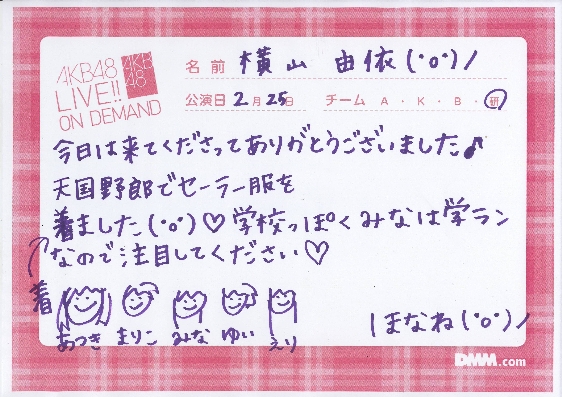 AKB48
LIVE!!
ON DEMAND
AKB
48
名前 横山 由依(˚o˚)ノ
公演日 2月25日 チーム A・K・B・研
今日は来てくださってありがとうございました♪
天国野郎でセーラー服を
着ました(˚o˚)♡学校っぽくみなは学ラン
なので注目してください♡
着
あつき まりこ みな ゆい えり
ほなね(˚o˚)ノ
DMM.com